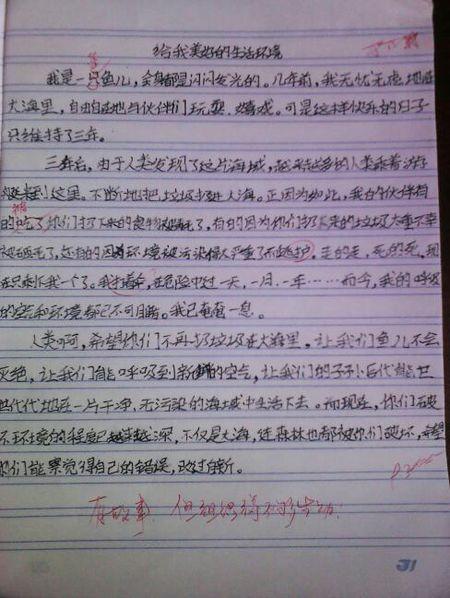 给我美好的生活环境
我是一只鱼儿，全身都是闪闪发光的。几年前，我无忧无虑地在
大海里，自由自在地与伙伴们玩耍、嬉戏。可是这样快乐的日子
只维持了三年。
三年后，由于人类发现了这片海域，越来越多的人类乘着游
艇来到这里。不断地把垃圾扔进大海。正因为如此，我的伙伴有
的吃了你们扔下来的食物被毒死了，有的因为你们扔下来的垃圾太重不幸
被砸死了，还有的因为环境被污染得太严重了而逃。走的走，死的死，现
在只剩下我一个了。我在危险中过一天，一月，一年……而今，我的呼吸
的空气和环境都已不可目睹。我已奄奄一息。
人类啊，希望你们不再扔垃圾在大海里。让我们鱼儿不会
灭绝，让我们能呼吸到新鲜的空气，让我们的子子孙孙后代能世
世代代地在一片干净、无污染的海域中生活下去。而现在，你们破
坏环境的程度已越来越深，不仅是大海，连森林也都被你们破坏，希望
你们能察觉得自己的错误，改过自新。
有故事，但组织得不够生动！
31